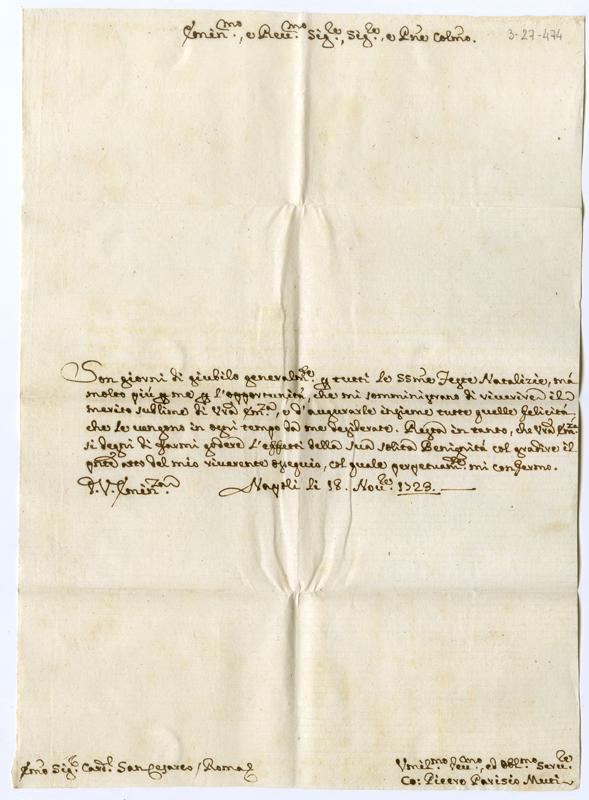 Emin.mo, e Rev.mo Sig.re, Sig.re, e Prne Colmo.
3-27-474
Son giorni di giubilo generalm.te p tutti le SSme Feste Natalizie, má
molto piú p me p l'opportunitá, che mi somministrano di riverire il
merito sublime di Vrā Em.a, e d'augurarle insieme tutte quelle felicitá,
che le vengono in ogni tempo da me desiderate. Resta in tanto, che Vrā Em.a
si degni di farmi godere l'effetti della sua solita Benignitá col gradire il
pnte atto del mio riverente ossequio, col quale perpetuam.te mi confermo.
D. V. Emin.za Napoli li 18. Nov.re 1728.
Emo Sig.r Card.l San Cesareo / Roma
Vmil.mo Dev.mo, ed Obl.mo Serv.re
Co: Pietro Parisio Muti